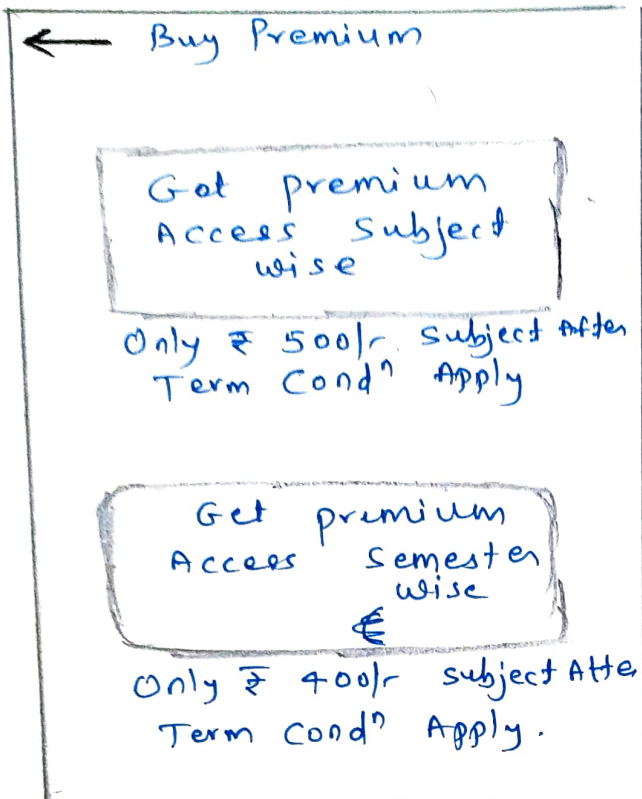 ← Buy Premium
Get premium
Access Subject
wise
Only ₹ 500/- Subject After
Term Condⁿ Apply
Get premium
Access Semester
wise
Only ₹ 400/- Subject Afte
Term Condⁿ Apply.